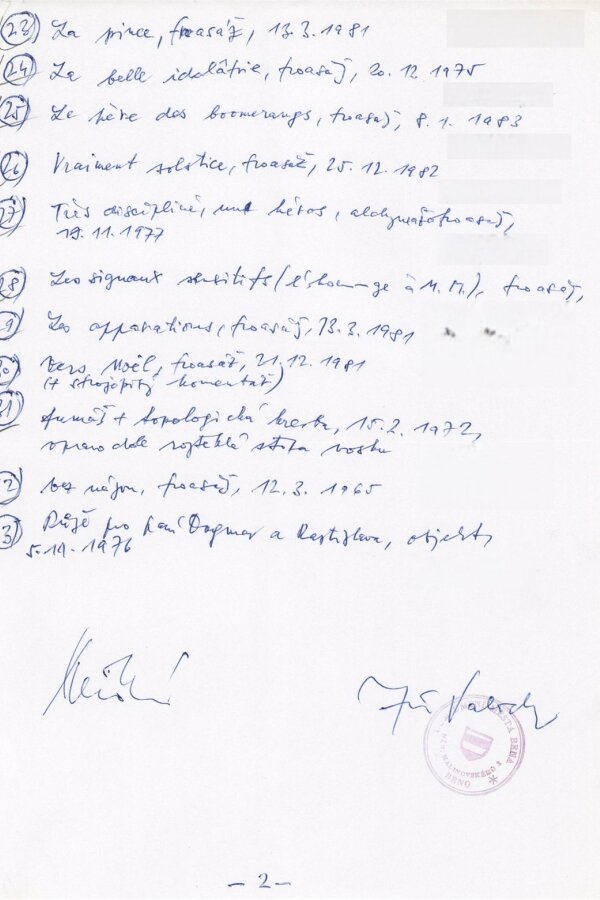 23 La pince, froasáž, 13.3.1981
24 La belle idolâtrie, froasáž, 20.12.1975
25 Le rêve des boomerangs, froasáž, 8.1.1983
26 Vraiment solstice, froasáž, 25.12.1982
27 Très discipliné, héros, froasáž,
19.11.1977
28 Les signaux sensitifs (à M. M.), froasáž,
9 Les apparations, froasáž, 13.3.1981
30 Vers Noël, froasáž, 21.12.1981
(+ strojopisný komentář)
31 + topologická kresba, 15.2.1972,
vpravo dole rozteklá stopa vosku
2 bez názvu, froasáž, 12.3.1965
3 Růže pro paní Dagmar a Rastislava, objekt,
5.11.1976
Jiří Valoch
MĚSTA BRNA
MALINOVSKÉHO 2
BRNO
– 2 –